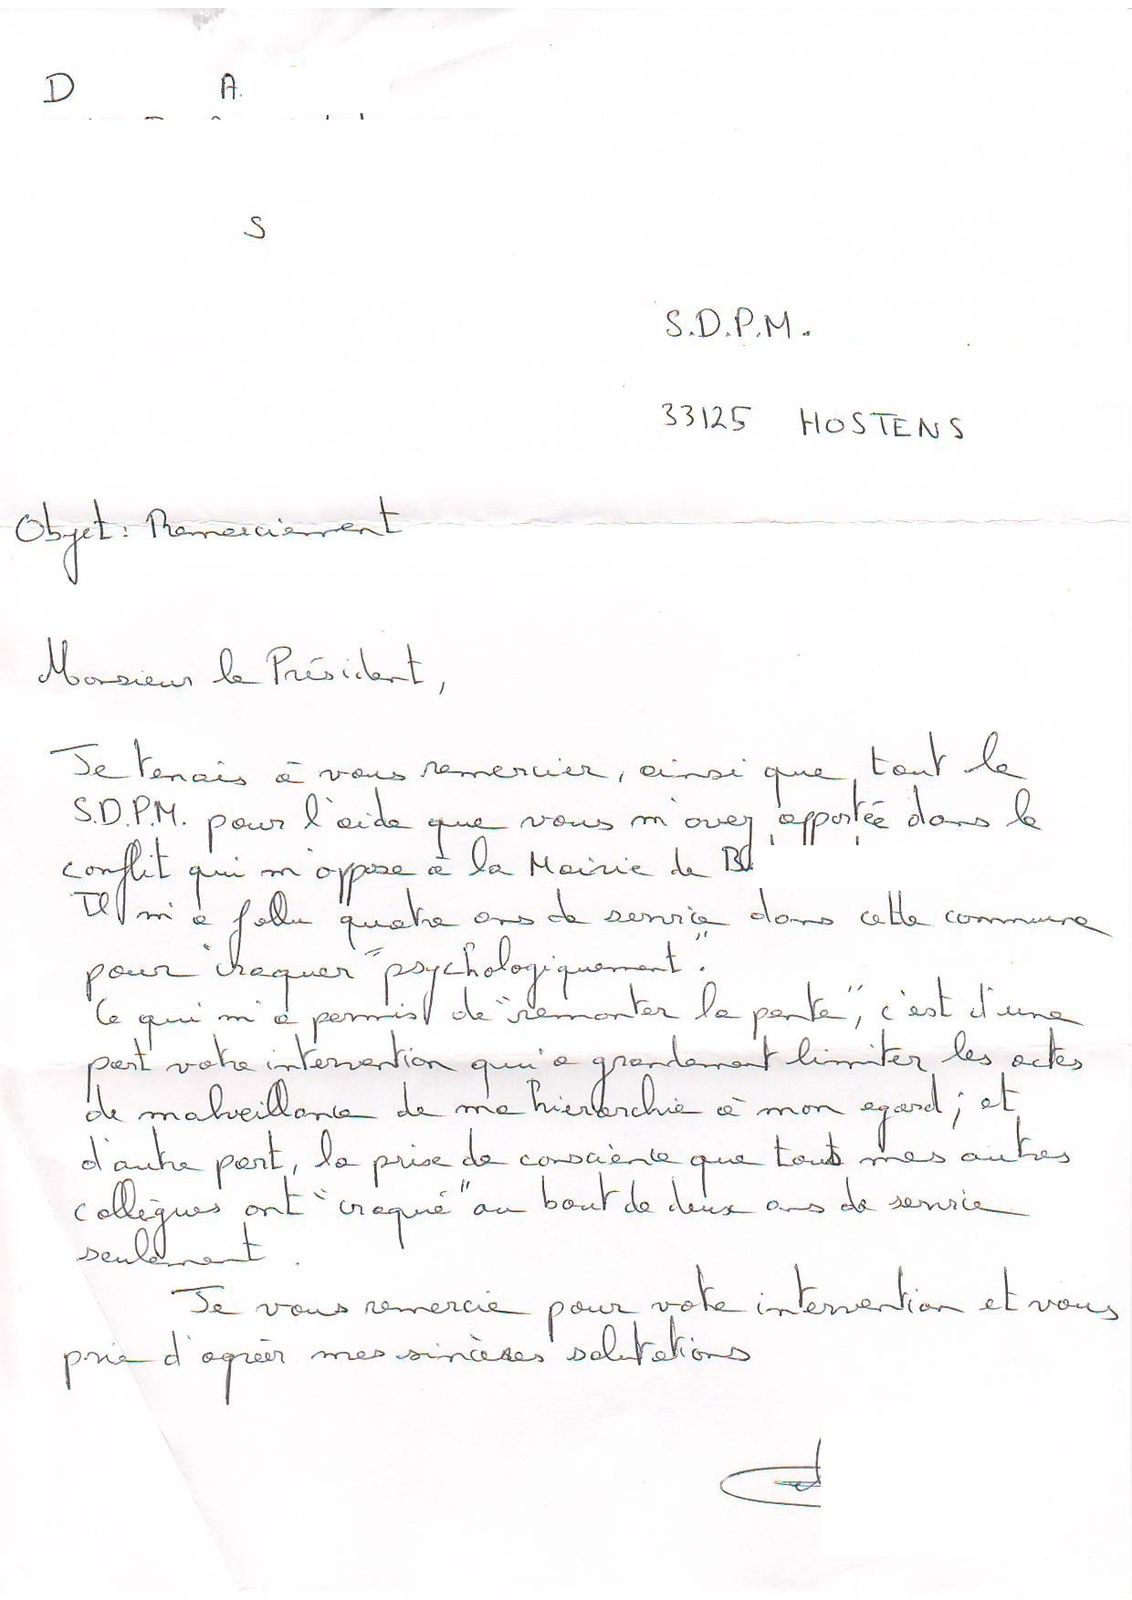 D A.
S
S.D.P.M.
33125 HOSTENS
Objet : Remerciement
Monsieur le Président,
Je tenais à vous remercier, ainsi que tout le
S.D.P.M. pour l'aide que vous m'avez apportée dans le
conflit qui m'oppose à la Mairie de B
Il m'a fallu quatre ans de service dans cette commune
pour "craquer" psychologiquement".
Ce qui m'a permis de "remonter la pente", c'est d'une
part votre intervention qui a grandement limiter les actes
de malveillance de ma hiérarchie à mon egard ; et
d'autre part, la prise de conscience que tous mes autres
collègues ont "craqué" au bout de deux ans de service
seulement.
Je vous remercie pour votre intervention et vous
prie d'agréer mes sincères salutations